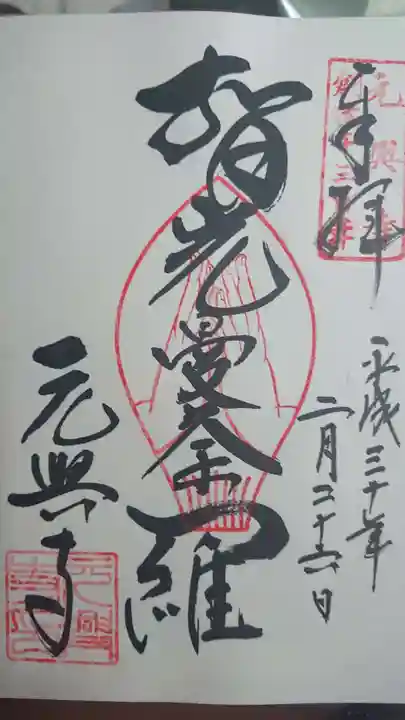 奉拝
平成三十年
二月二十六日
智光曼荼羅
元興寺
元興寺